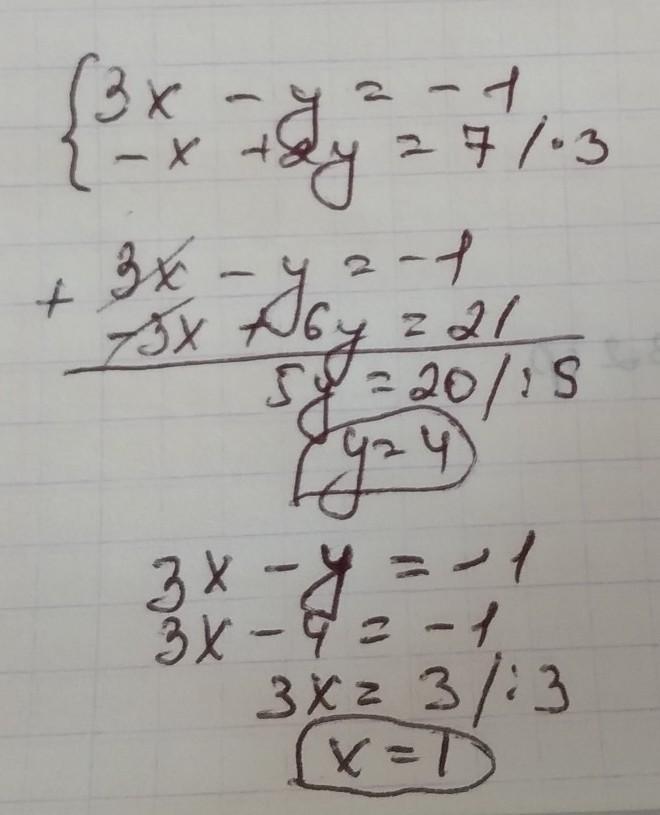 {3x - y = -1
-x + 2y = 7 / · 3
+ 3x - y = -1
-3x + 6y = 21
5y = 20 / : 5
y = 4
3x - y = -1
3x - 4 = -1
3x = 3 / : 3
x = 1